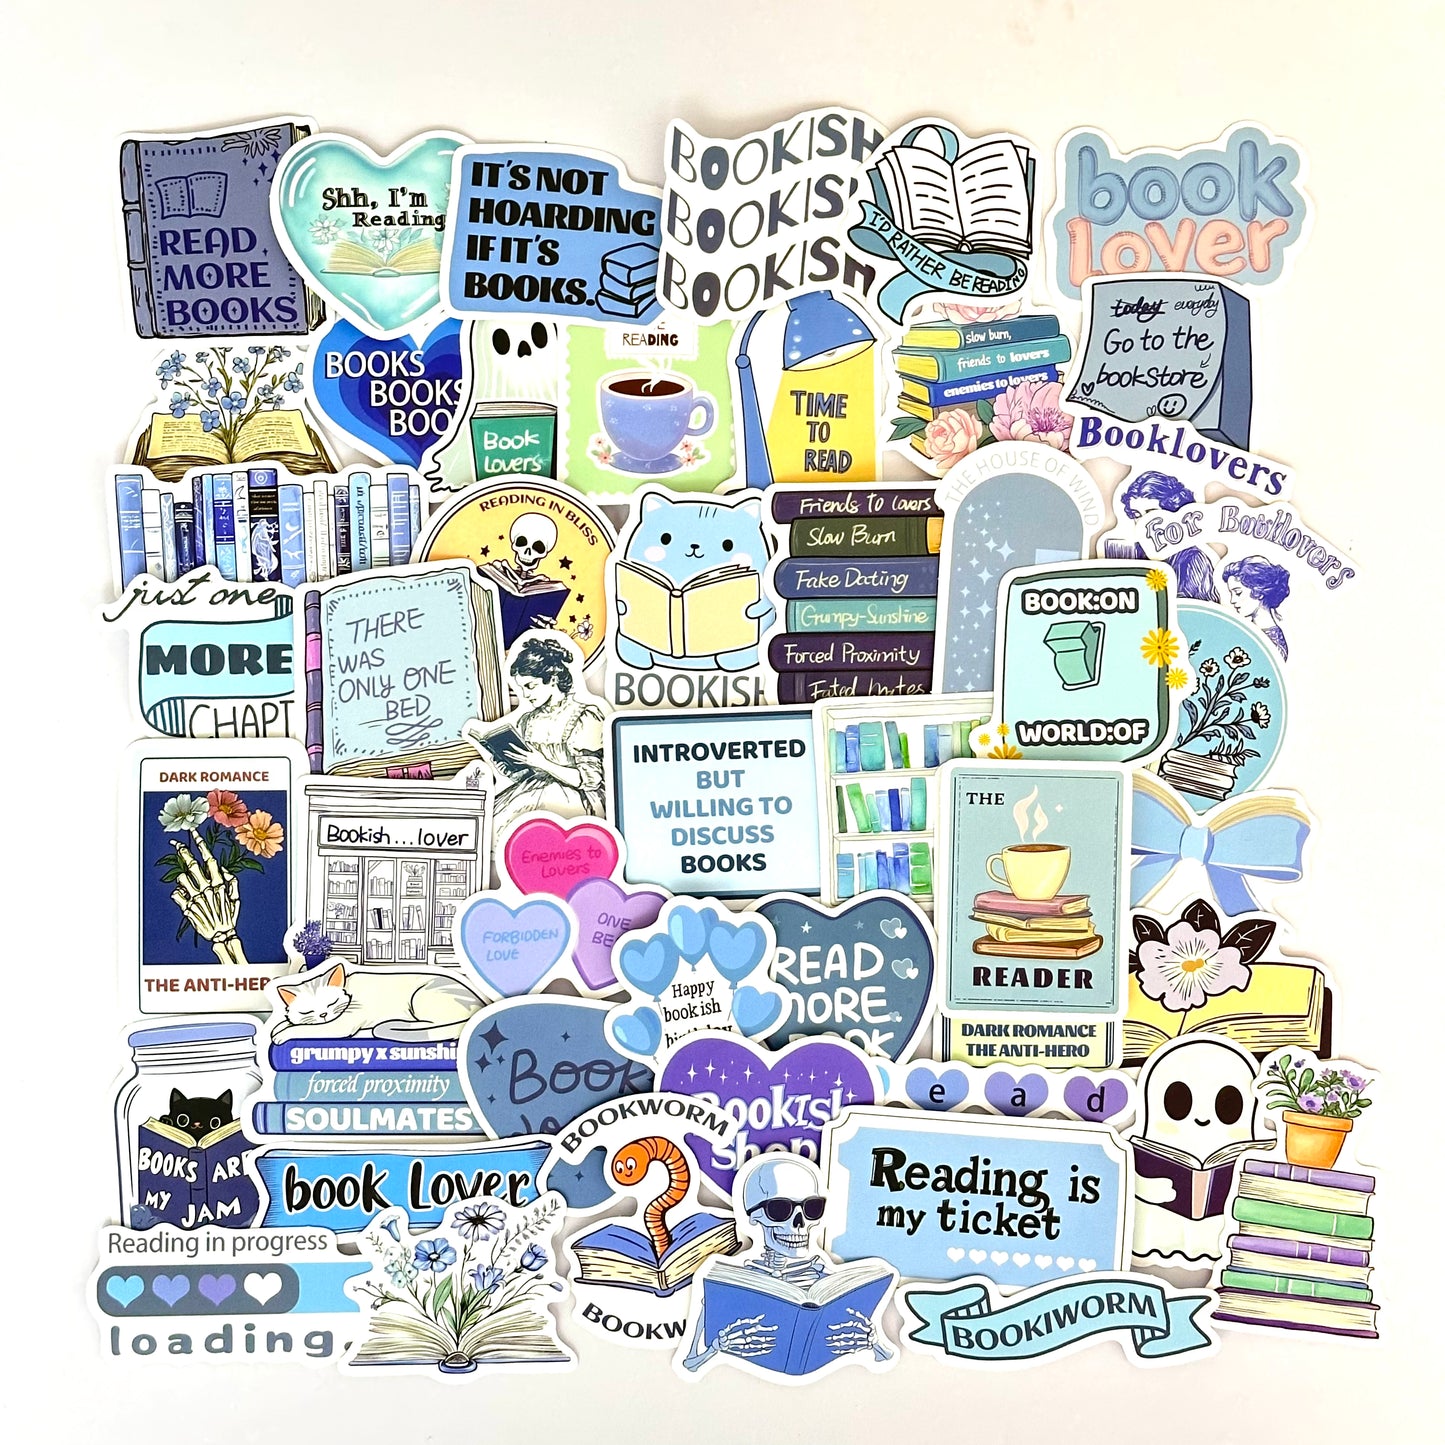 READ
MORE
BOOKS
Shh, I'm
Reading
IT'S NOT
HOARDING
IF IT'S
BOOKS.
BOOKISH
BOOKIS
BOOKISH
I'D RATHER BE READING
book
Lover
BOOKS
BOOKS
BOO
Book
lovers
READING
TIME
TO
READ
slow burn,
friends to lovers
enemies to lovers
today everyday
Go to the
bookStore
Booklovers
For Booklovers
just one
MORE
CHAPT
THERE
WAS
ONLY ONE
BED
READING IN BLISS
BOOKISH
Friends to lovers
Slow Burn
Fake Dating
Grumpy-Sunshine
Forced Proximity
Fated Mates
THE HOUSE OF WIND
BOOK:ON
WORLD:OF
DARK ROMANCE
THE ANTI-HER
Bookish...lover
INTROVERTED
BUT
WILLING TO
DISCUSS
BOOKS
Enemies to
Lovers
FORBIDDEN
LOVE
ONE
BE
Happy
bookish
birthday
READ
MORE
BOOK
THE
READER
DARK ROMANCE
THE ANTI-HERO
grumpy x sunshi
forced proximity
SOULMATES
Book
BOOKS ARE
MY JAM
book Lover
BOOKWORM
BOOKW
Bookish
shop
e a d
Reading is
my ticket
Reading in progress
loading.
BOOKIWORM